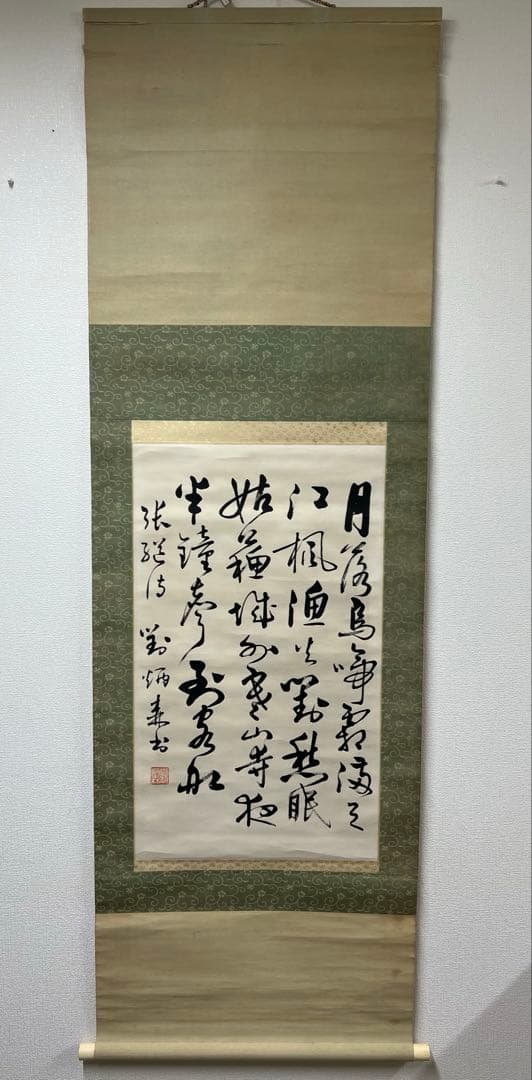 月落烏啼霜滿天
江楓漁火對愁眠
姑蘇城外寒山寺夜
半鐘聲到客船
張継詩 劉炳森書